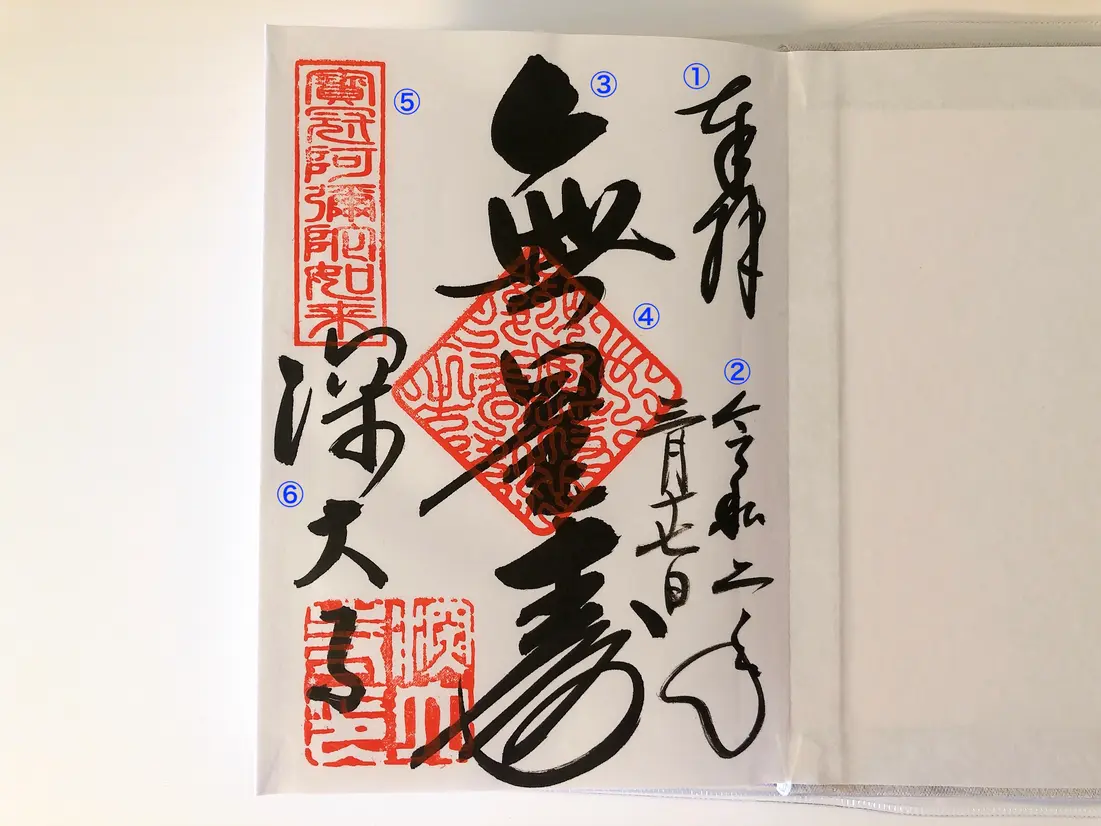 ①
奉拝
②
令和二年
三月十七日
③
無量寿
④
⑤
寶冠阿彌陀如来
⑥
深大寺
深大
寺印